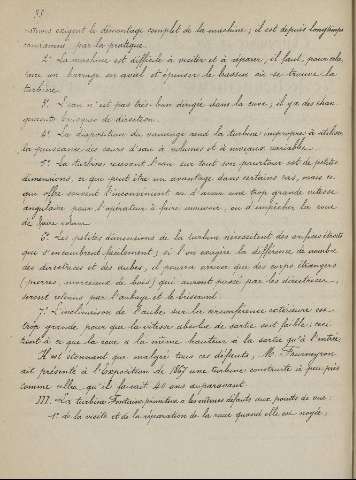 33
rations exigent le démontage complet de la machine; il est depuis longtemps
condamné par la pratique.
2° La machine est difficile à visiter et à réparer, il faut, pour cela,
faire un barrage en aval et épuiser le bassin où se trouve la
turbine.
3° L'eau n'est pas très bien dirigée dans la cuve; il y a des chan-
gements brusques de direction.
4° La disposition du vannage rend la turbine impropre à utiliser
la puissance des cours d'eau à volumes et à niveaux variables.
5° La turbine recevant l'eau sur tout son pourtour est de petites
dimensions, ce qui peut être un avantage dans certains cas, mais ce
qui offre souvent l'inconvénient ou d'avoir une trop grande vitesse
angulaire pour l'opérateur à faire mouvoir, ou d'empêcher la roue
de faire volant.
6° Les petites dimensions de la turbine nécessitent des orifices étroits
qui s'encombrent facilement; si l'on exagère la différence de nombre
des directrices et des aubes, il pourra arriver que des corps étrangers
(pierres, morceaux de bois) qui auront passé par les directrices,
seront retenus par l'aubage et le briseront.
7° L'inclinaison de l'aube sur la circonférence extérieure est
trop grande pour que la vitesse absolue de sortie soit faible; ceci
tient à ce que la roue a la même hauteur à la sortie qu'à l'entrée.
Il est étonnant que malgré tous ces défauts, M. Fourneyron
ait présenté à l'Exposition de 1867 une turbine construite à peu près
comme celles qu'il faisait 40 ans auparavant.
III. La turbine Fontaine primitive a les mêmes défauts aux points de vue:
1° de la visite et de la réparation de la roue quand elle est noyée;